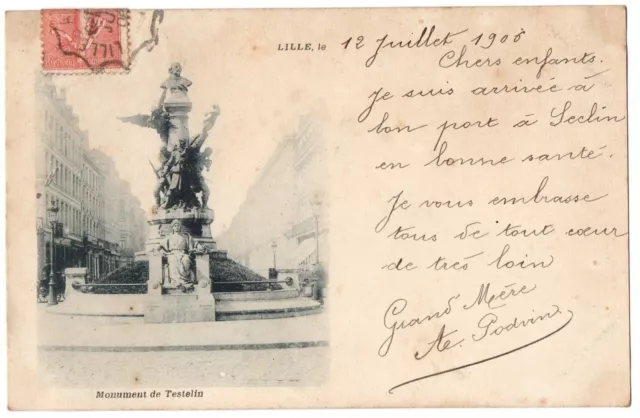 LILLE, le 12 Juillet 1908
Chers enfants.
Je suis arrivée à
bon port à Seclin
en bonne santé.
Je vous embrasse
tous de tout cœur
de très loin
Grand'Mère
Ae. Podvin
Monument de Testelin